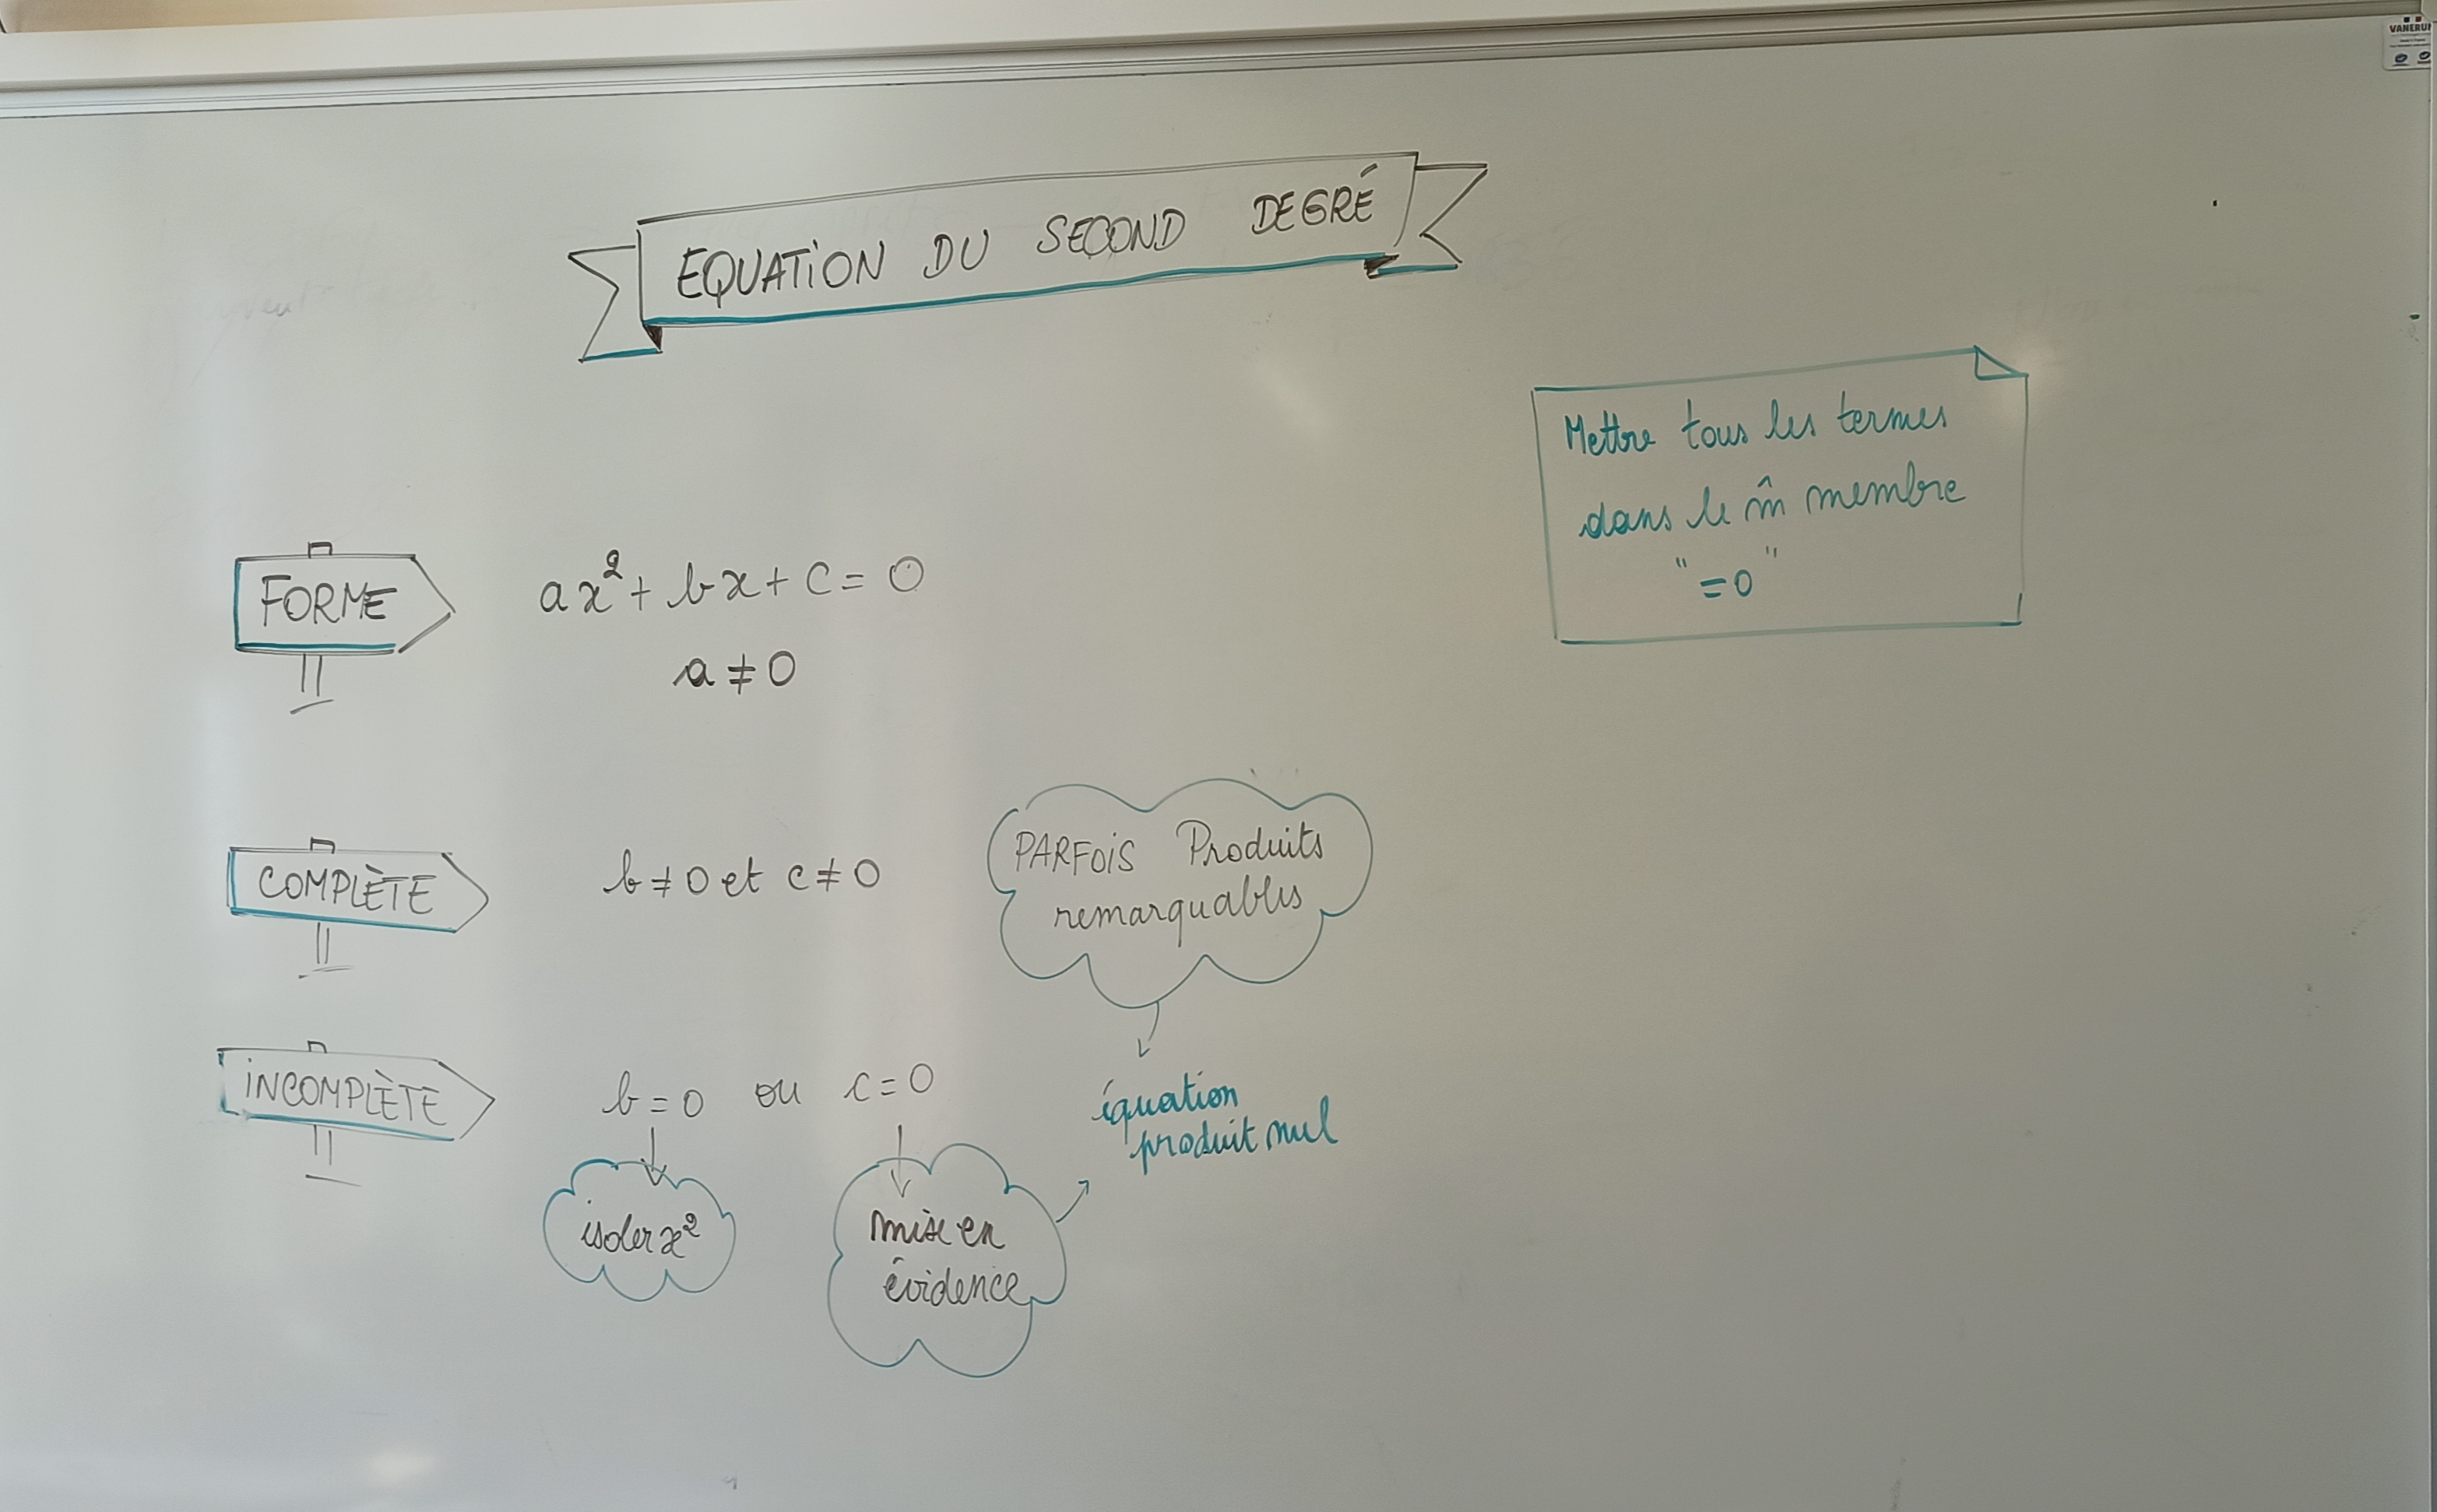 VANERUM
EQUATiON DU SECOND DEGRÉ
Mettre tous les termes
dans le m̂ membre
"=0"
FORME
ax²+ bx + c = 0
a ≠ 0
COMPLÈTE
b ≠ 0 et c ≠ 0
PARFOiS Produits
remarquables
iNCOMPLÈTE
b = 0 ou c = 0
équation
produit nul
isoler x²
mise en
évidence